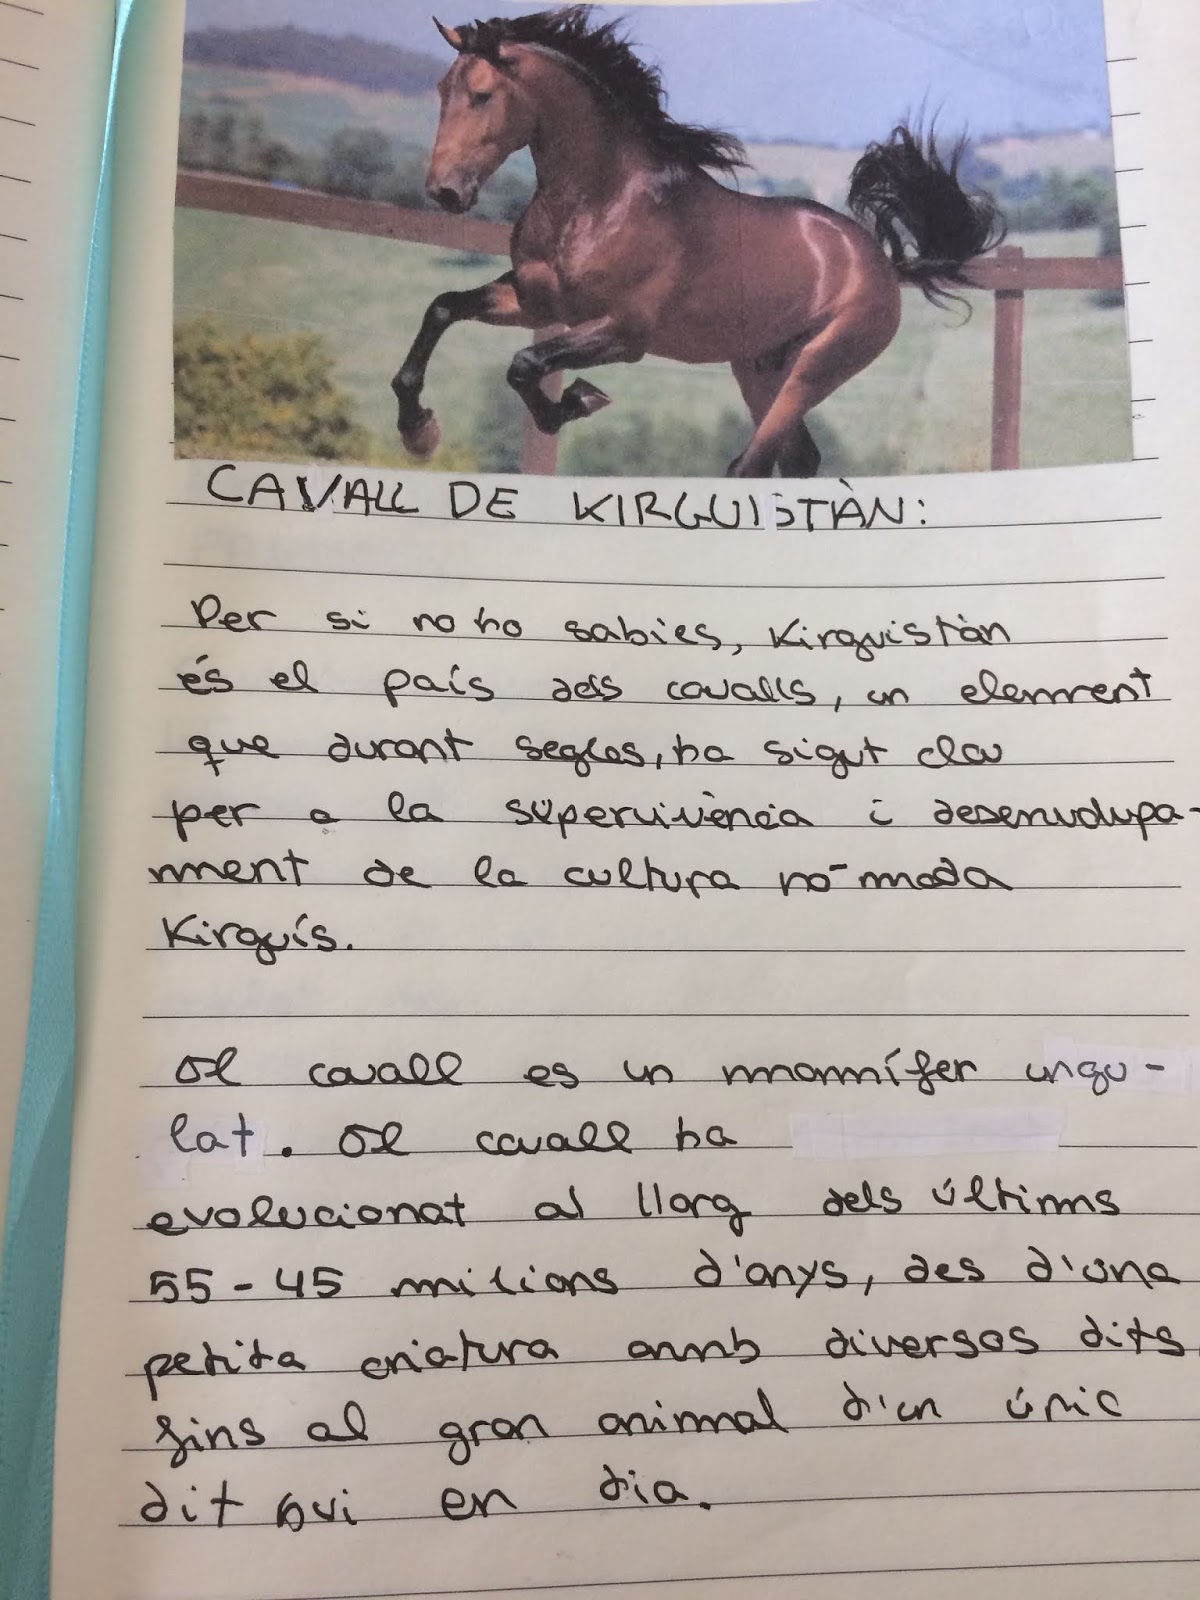 CAVALL DE KIRGUISTÀN:
Per si no ho sabies, Kirguistàn
és el país dels cavalls, un element
que durant segles, ha sigut clau
per a la supervivència i desenvolupa-
ment de la cultura nó-mada
Kirguís.
El cavall es un mamífer ungu-
lat. El cavall ha
evolucionat al llarg dels últims
55-45 milions d'anys, des d'una
petita criatura amb diversos dits
fins al gran animal d'un únic
dit avui en dia.